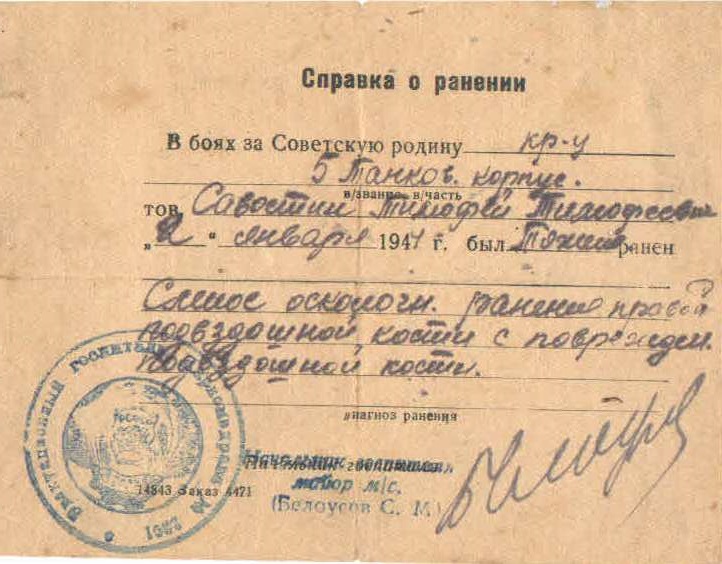 Справка о ранении
В боях за Советскую родину кр-ц
5 Танков. корпус.
в/звание, в/часть
тов. Савостин Тимофей Тимофеевич
„2“ января 1944 г. был тяжело ранен
Слепое осколочн. ранение правой
подвздошной кости с поврежден.
подвздошной кости.
диагноз ранения
Начальник госпиталя
майор м/с.
(Белоусов С. М)
14843 Заказ 4471
Эвакуационный госпиталь